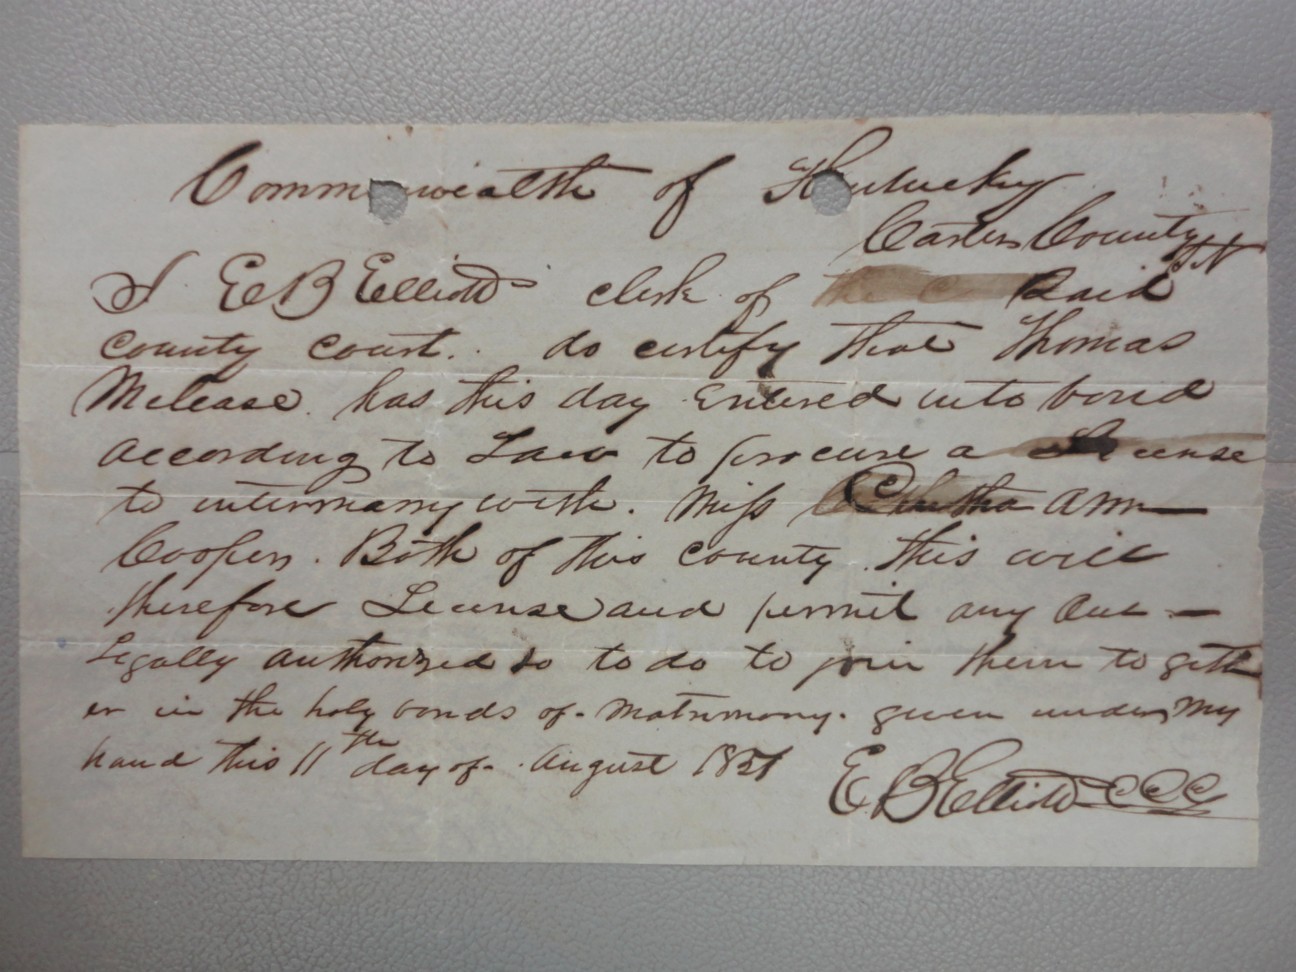 Commonwealth of Kentucky
Carter County Sct
I E B Elliott clerk of the said
county court. do certify that Thomas
Mclease has this day Entered into bond
according to Law to procure a License
to intermarry with. Miss Ann
Cooper. Both of this county. this will
therefore License and permit any one
Legally authorized so to do to join them to geth
er in the holy bonds of matrimony. given under my
hand this 11th day of August 1851
E B Elliott C C C